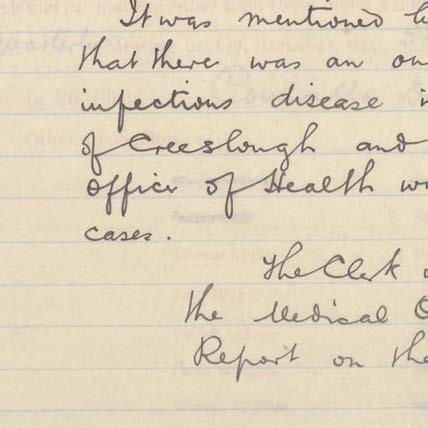 It was mentioned
that there was an
infectious disease
of Creeslough and
Officer of Health
cases.
The Clerk
the Medical
Report on the